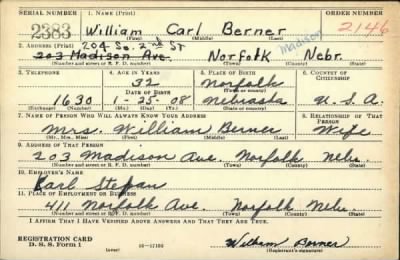 SERIAL NUMBER
1. NAME (Print)
ORDER NUMBER
2383
William Carl Berner
2146
(First) (Middle) (Last)
204 So. 2nd St
Madison
2. ADDRESS (Print)
203 Madison Ave. Norfolk Nebr.
(Number and street or R. F. D. number) (Town) (County) (State)
3. TELEPHONE
4. AGE IN YEARS
5. PLACE OF BIRTH
6. COUNTRY OF CITIZENSHIP
32
Norfolk
DATE OF BIRTH
(Town or county)
1630
1-25-08
Nebraska
U.S.A.
(Exchange) (Number)
(Mo.) (Day) (Yr.)
(State or country)
7. NAME OF PERSON WHO WILL ALWAYS KNOW YOUR ADDRESS
8. RELATIONSHIP OF THAT PERSON
Mrs. William Berner Wife
(Mr., Mrs., Miss) (First) (Middle) (Last)
9. ADDRESS OF THAT PERSON
203 Madison Ave. Norfolk Nebr.
(Number and street or R. F. D. number) (Town) (County) (State)
10. EMPLOYER'S NAME
Karl Stefan
11. PLACE OF EMPLOYMENT OR BUSINESS
411 Norfolk Ave. Norfolk Nebr.
(Number and street or R. F. D. number) (Town) (County) (State)
I AFFIRM THAT I HAVE VERIFIED ABOVE ANSWERS AND THAT THEY ARE TRUE.
REGISTRATION CARD
D. S. S. Form 1
William Berner
(Registrant's signature)